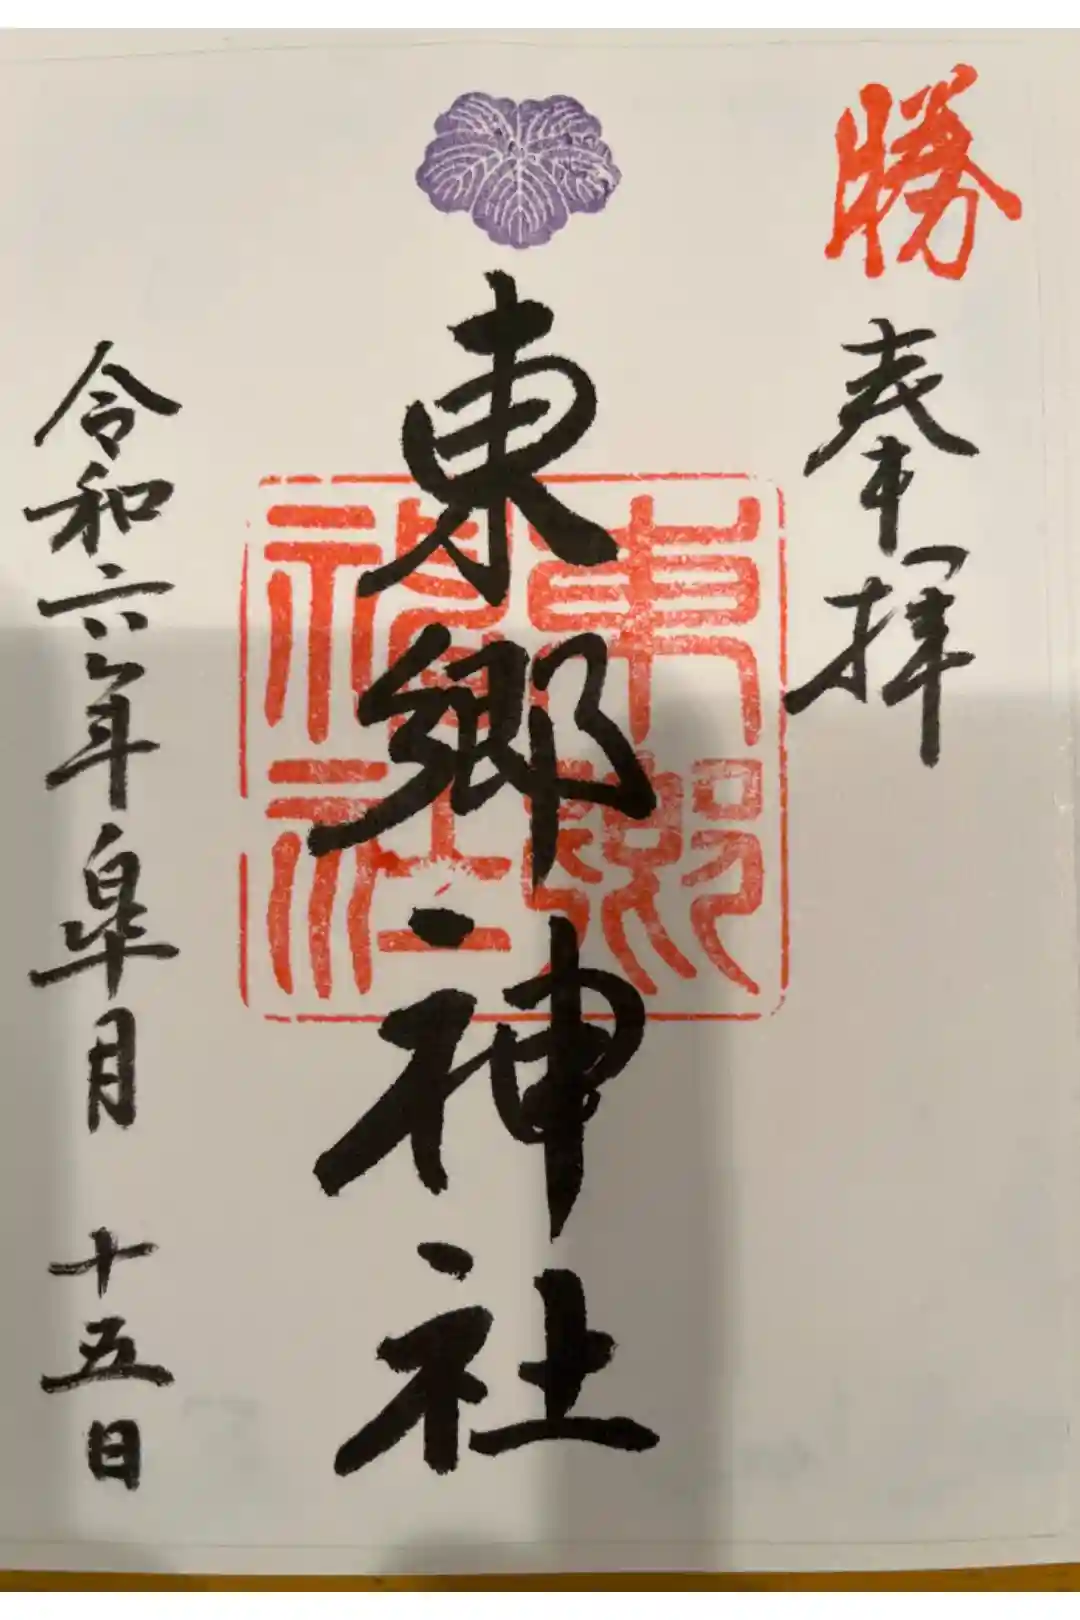 勝
奉拝
東郷神社
東郷神社
令和六年皐月 十五日